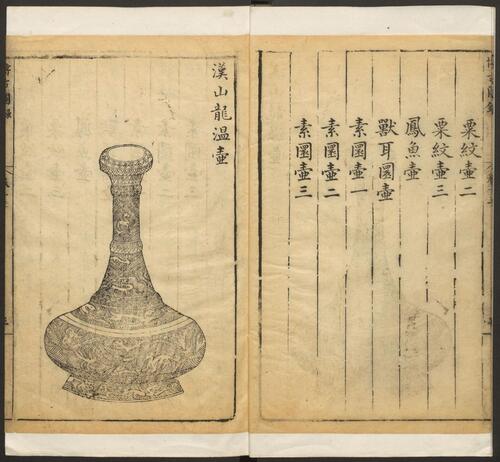 粟紋壺二
粟紋壺三
鳳魚壺
獸耳圜壺
素圜壺一
素圜壺二
素圜壺三
漢山龍温壺